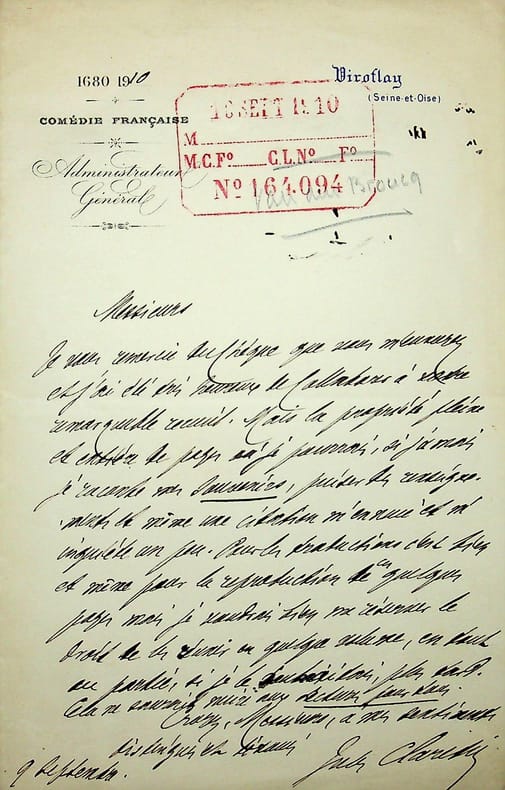 1680 1910
COMÉDIE FRANÇAISE
Administrateur
Général
Viroflay
(Seine-et-Oise)
16 SEPT 1910
M
M.C.Fº C.L.Nº Fº
Nº 164094
Messieurs
Je vous remercie du chèque que vous m'envoyez
et j'ai été très heureux de collaborer à votre
remarquable recueil. Mais la propriété pleine
et entière de pages où je pourrai, si jamais
je raconte mes Souvenirs, puiser des renseigne-
ments et même une citation m'ennuie et m'
inquiète un peu. Pour les traductions c'est bien
et même pour la reproduction de ces quelques
pages mais je voudrais bien me réserver le
droit de les réunir en quelque volume, en tout
ou partie, si je le plus tard.
Cela ne saurait nuire aux
Croyez, Messieurs, à mes sentiments
distingués et dévoués
Jules Claretie
9 Septembre.